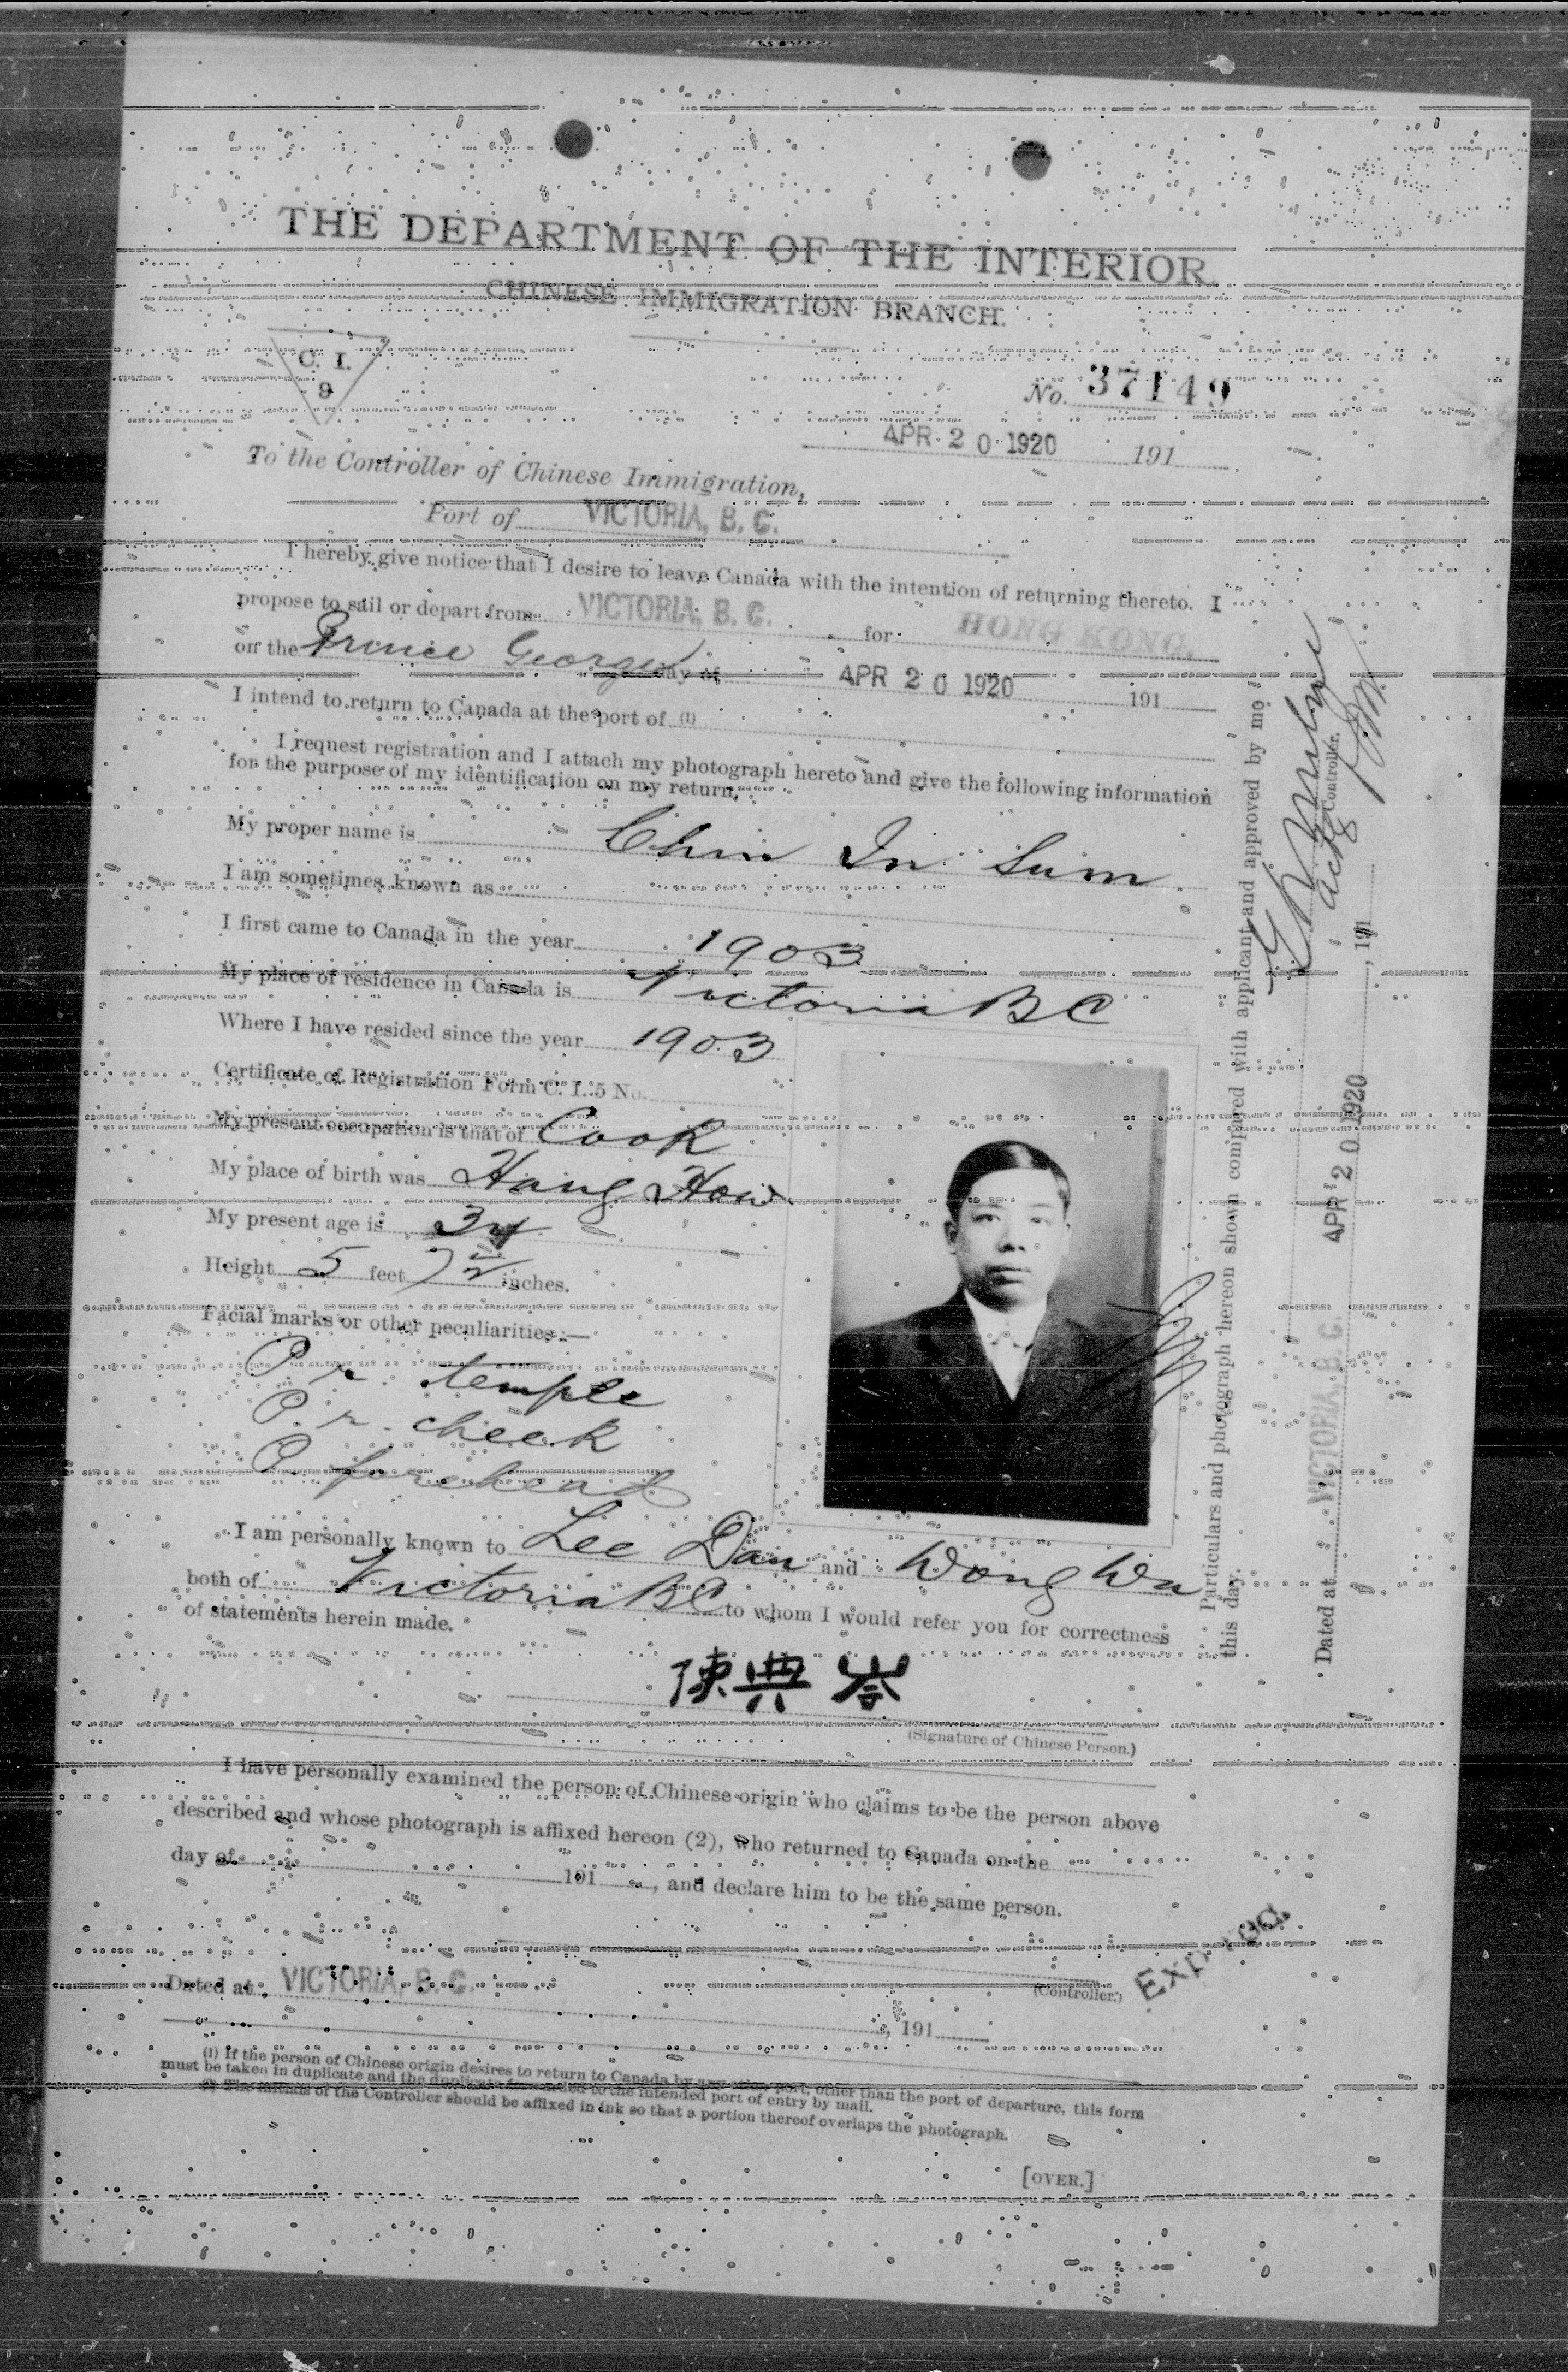 THE DEPARTMENT OF THE INTERIOR.
CHINESE IMMIGRATION BRANCH.
C. I.
9
No. 37149
APR 20 1920 191
To the Controller of Chinese Immigration,
Port of VICTORIA, B. C.
I hereby give notice that I desire to leave Canada with the intention of returning thereto. I
propose to sail or depart from VICTORIA, B. C. for HONG KONG.
on the Prince George day of APR 20 1920 191
I intend to return to Canada at the port of (1)
I request registration and I attach my photograph hereto and give the following information
for the purpose of my identification on my return.
My proper name is Chin In Sum
I am sometimes known as
I first came to Canada in the year 1903
My place of residence in Canada is Victoria BC
Where I have resided since the year 1903
Certificate of Registration Form C. I. 5 No.
My present occupation is that of Cook
My place of birth was Hang How
My present age is 34
Height 5 feet 7 1/2 inches.
Facial marks or other peculiarities:—
P. r. temple
P. r. cheek
P. forehead
I am personally known to Lee Dan and Wong Wa
both of Victoria BC to whom I would refer you for correctness
of statements herein made.
陳典岺
(Signature of Chinese Person.)
I have personally examined the person of Chinese origin who claims to be the person above
described and whose photograph is affixed hereon (2), who returned to Canada on the
day of 191 , and declare him to be the same person.
(Controller.)
Dated at VICTORIA, B. C.
, 191
(1) If the person of Chinese origin desires to return to Canada by any other port, other than the port of departure, this form
must be taken in duplicate and the duplicate forwarded to the intended port of entry by mail.
(2) The initials of the Controller should be affixed in ink so that a portion thereof overlaps the photograph.
[OVER.]
Particulars and photograph hereon shown compared with applicant and approved by me
this day.
Actg Controller.
Dated at VICTORIA, B. C. APR 20 1920 , 191